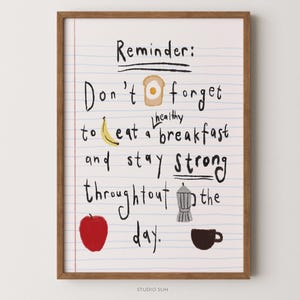 Reminder:
Don't forget
to eat a healthy breakfast
and stay strong
throughtout the
day.
STUDIO SUH